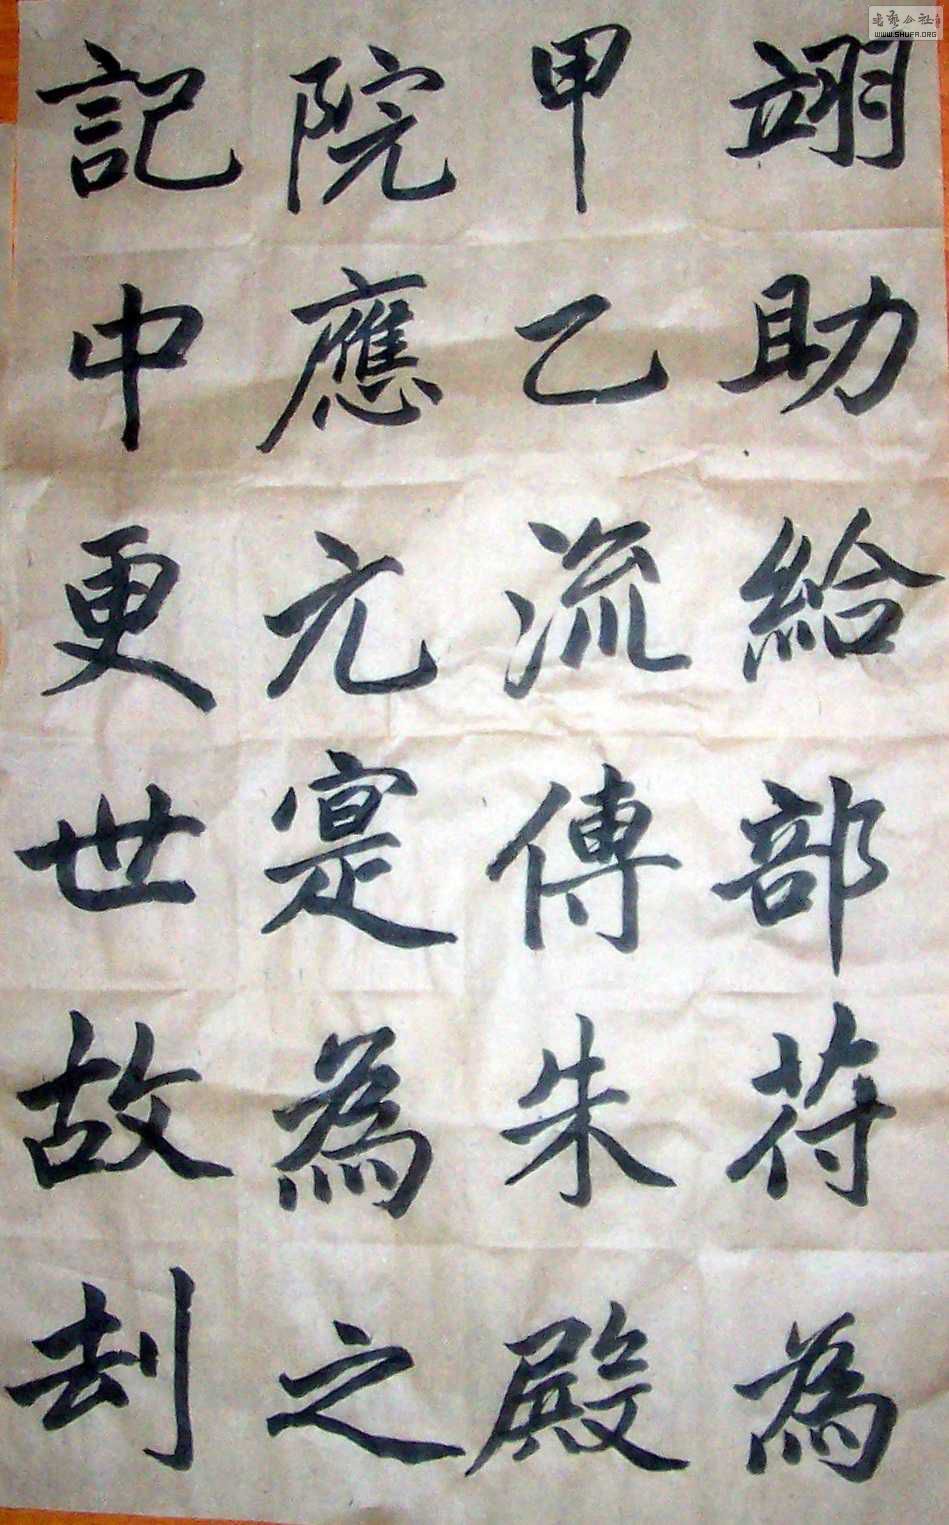 翊助給部符為
甲乙流傳朱殿
院應元寔為之
記中更世故刦
書藝公社
WWW.SHUFA.ORG